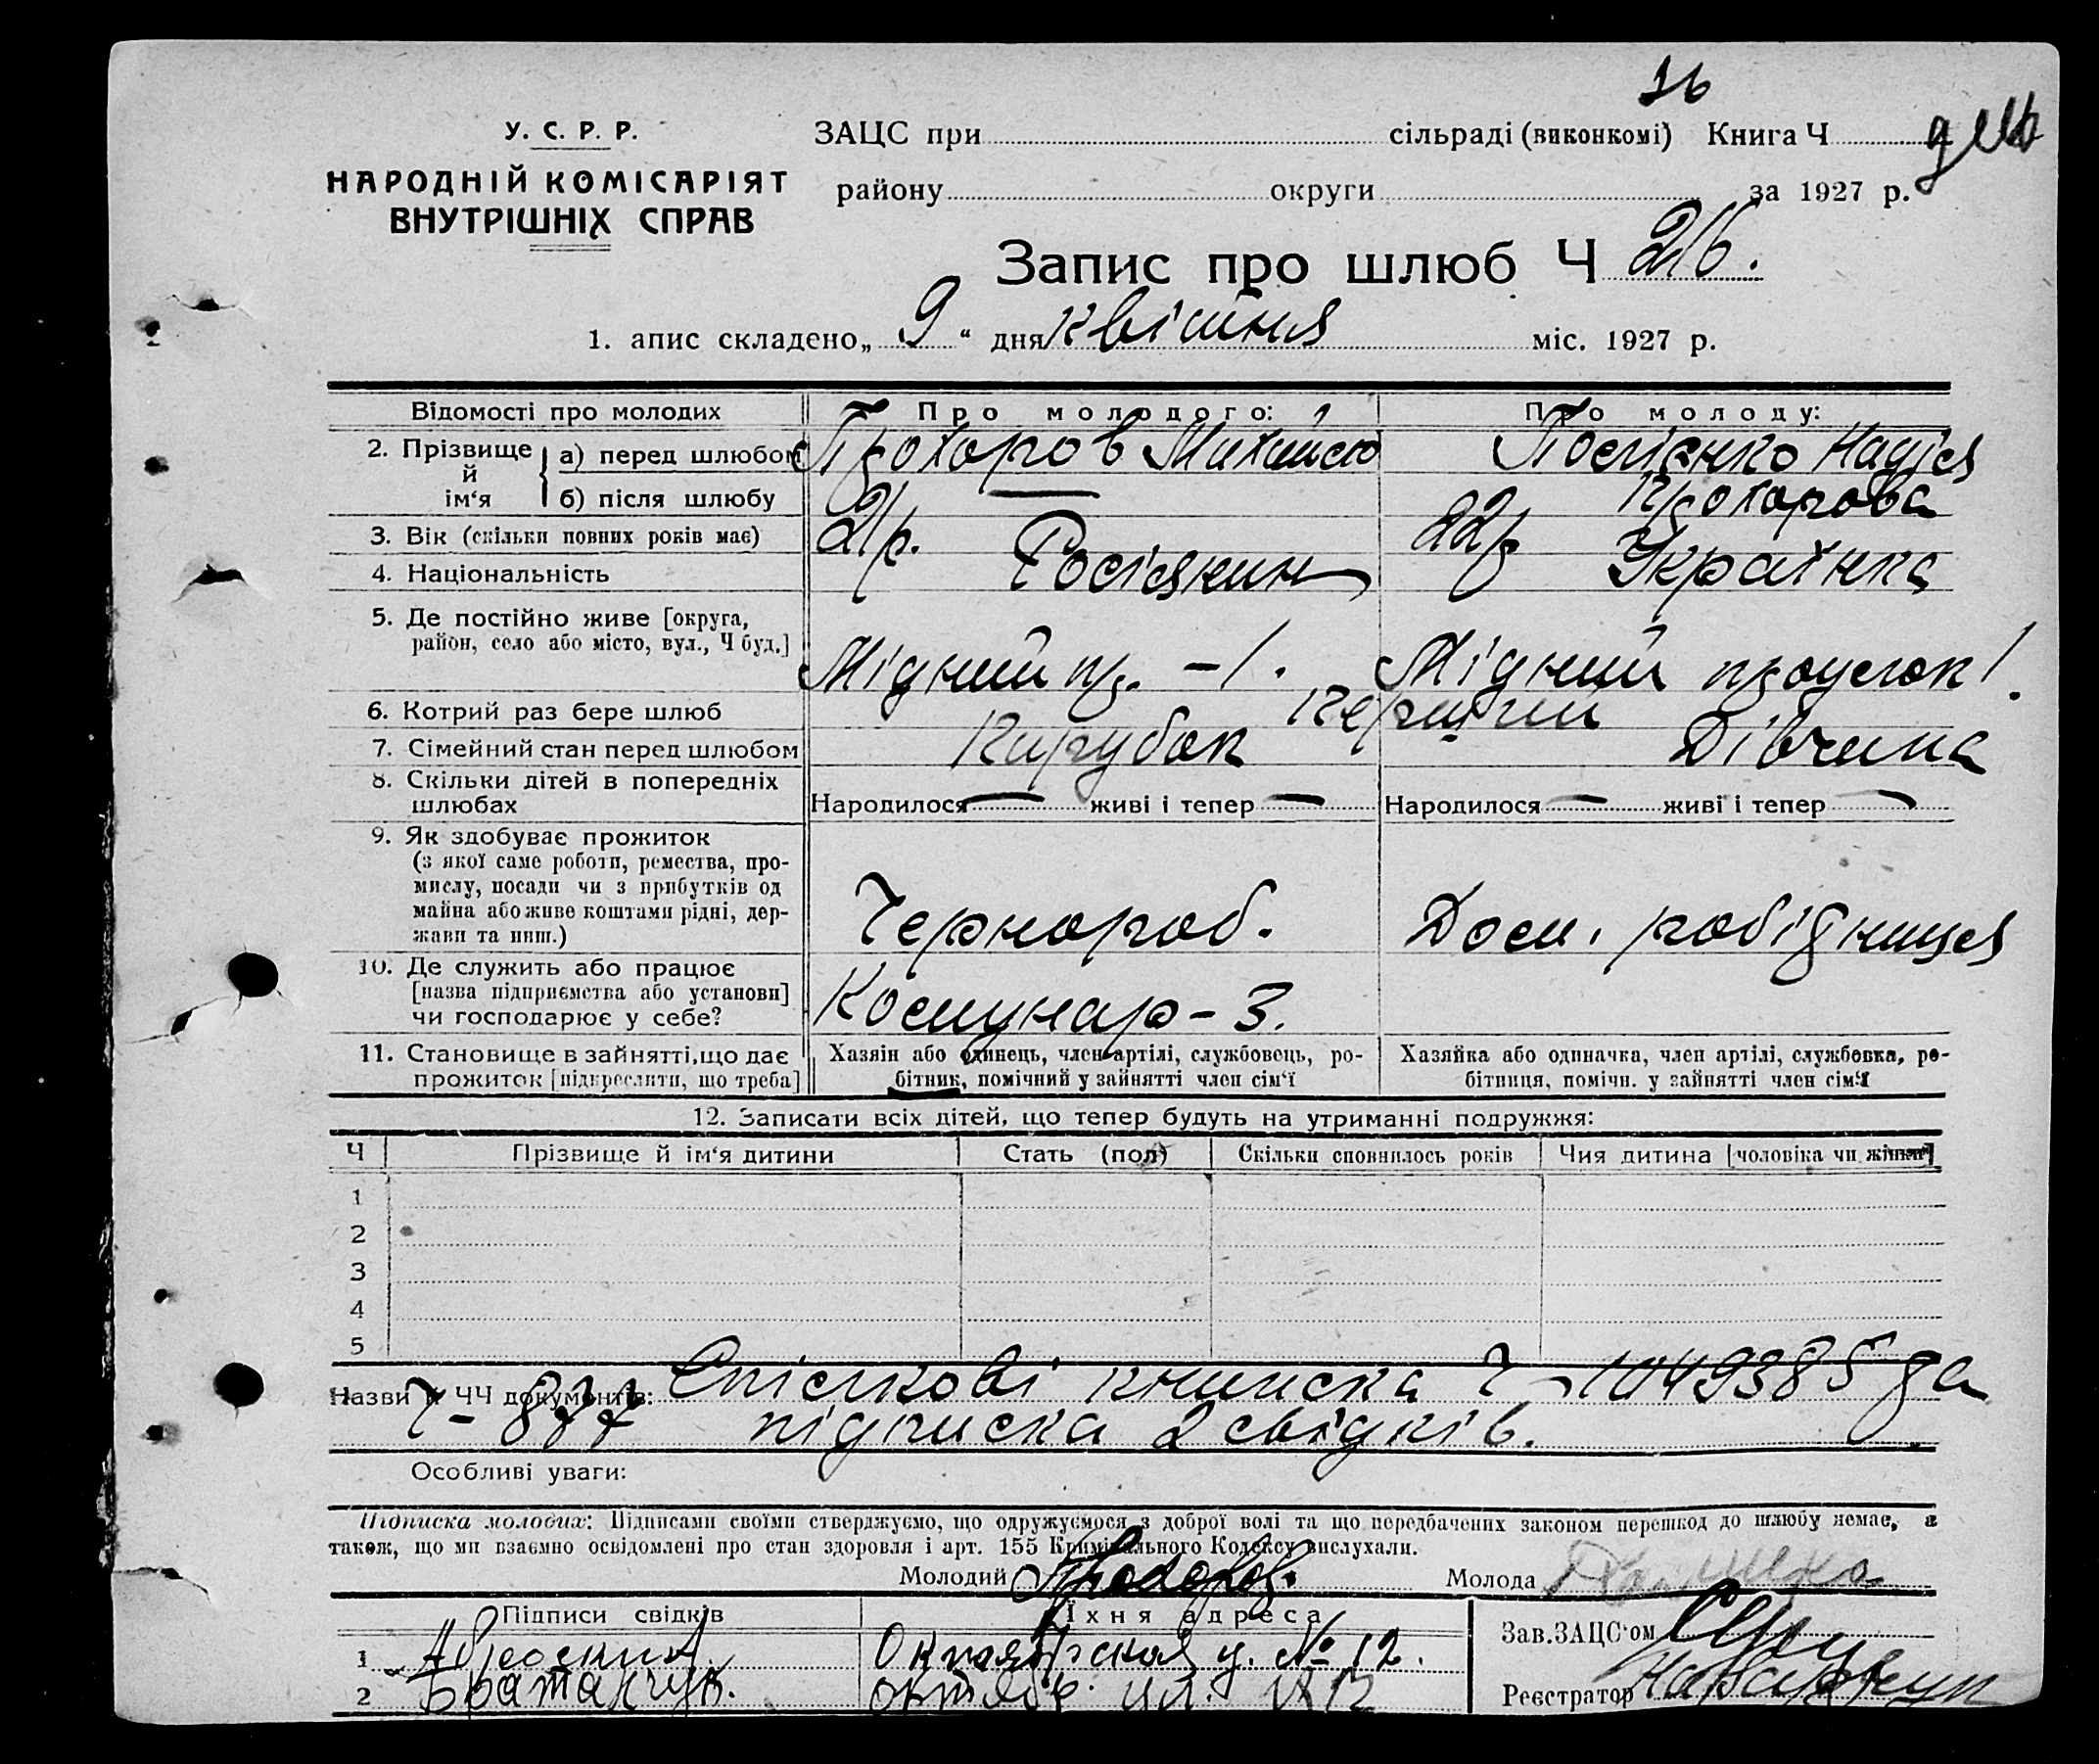 16
У. С. Р. Р.
НАРОДНІЙ КОМІСАРІЯТ
ВНУТРІШНІХ СПРАВ
ЗАЦС при сільраді (виконкомі) Книга Ч
району округи за 1927 р.
Запис про шлюб Ч 216.
1. апис складено „ 9 “ дня квітня міс. 1927 р.
Відомості про молодих Про молодого: Про молоду:
2. Прізвище й ім‘я
а) перед шлюбом Прохоров Михайло Надія
б) після шлюбу — Прохорова
3. Вік (скільки повних років має) 21р. 22р
4. Національність Росіянин Українка
5. Де постійно живе [округа, район, село або місто, вул., Ч буд.] Мідний пр. – 1. Мідний проулок 1.
6. Котрий раз бере шлюб Перший
7. Сімейний стан перед шлюбом Парубок Дівчина
8. Скільки дітей в попередніх шлюбах Народилося — живі і тепер — Народилося — живі і тепер —
9. Як здобуває прожиток
(з якої саме роботи, ремества, про-
мислу, посади чи з прибутків од
майна або живе коштами рідні, дер-
жави та инш.) Чернороб. Дом. робідниця
10. Де служить або працює
[назва підприємства або установи]
чи господарює у себе? Комунар – 3.
11. Становище в зайнятті, що дає
прожиток [підкреслити, що треба]
Хазяін або одинець, член артілі, службовець, ро-
бітник, помічний у зайнятті член сім‘ї
Хазяйка або одиначка, член артілі, службовка, ро-
бітниця, помічн. у зайнятті член сім‘ї
12. Записати всіх дітей, що тепер будуть на утриманні подружжя:
Ч Прізвище й ім‘я дитини Стать (пол) Скільки сповнилось років Чия дитина [чоловіка чи жінки]
1
2
3
4
5
Назви й ЧЧ документів: Спілкові книжка Ч – 1049385 да
Ч – 877 підписка 2 свідків.
Особливі уваги:
Підписка молодих: Підписами своїми стверджуємо, що одружуємося з доброї волі та що передбачених законом перешкод до шлюбу немає, а
також, що ми взаємно освідомлені про стан здоровля і арт. 155 Кримінального Кодексу вислухали.
Молодий Прохоров. Молода
Підписи свідків Їхня адреса
1 Октябрская у. № 12.
2 Братанчук. октябр. ул. № 12
Зав. ЗАЦС‘ом
Реєстратор